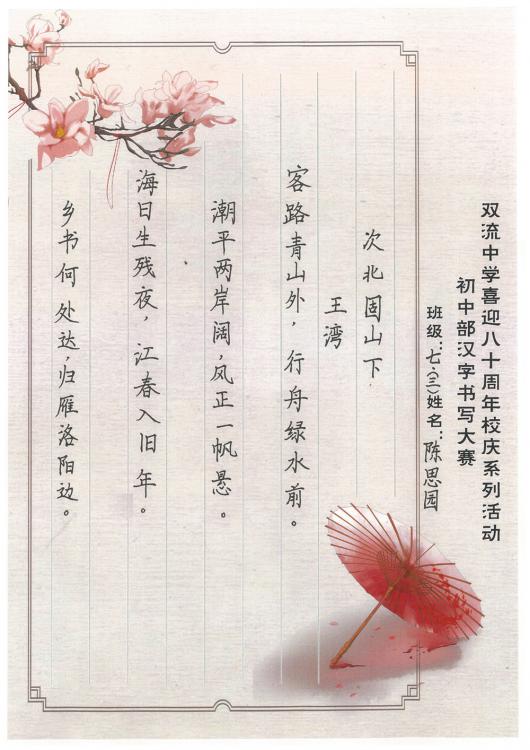 双流中学喜迎八十周年校庆系列活动
初中部汉字书写大赛
班级:七.(三)姓名:陈思园
次北固山下
王湾
客路青山外,行舟绿水前。
潮平两岸阔,风正一帆悬。
海日生残夜,江春入旧年。
乡书何处达,归雁洛阳边。